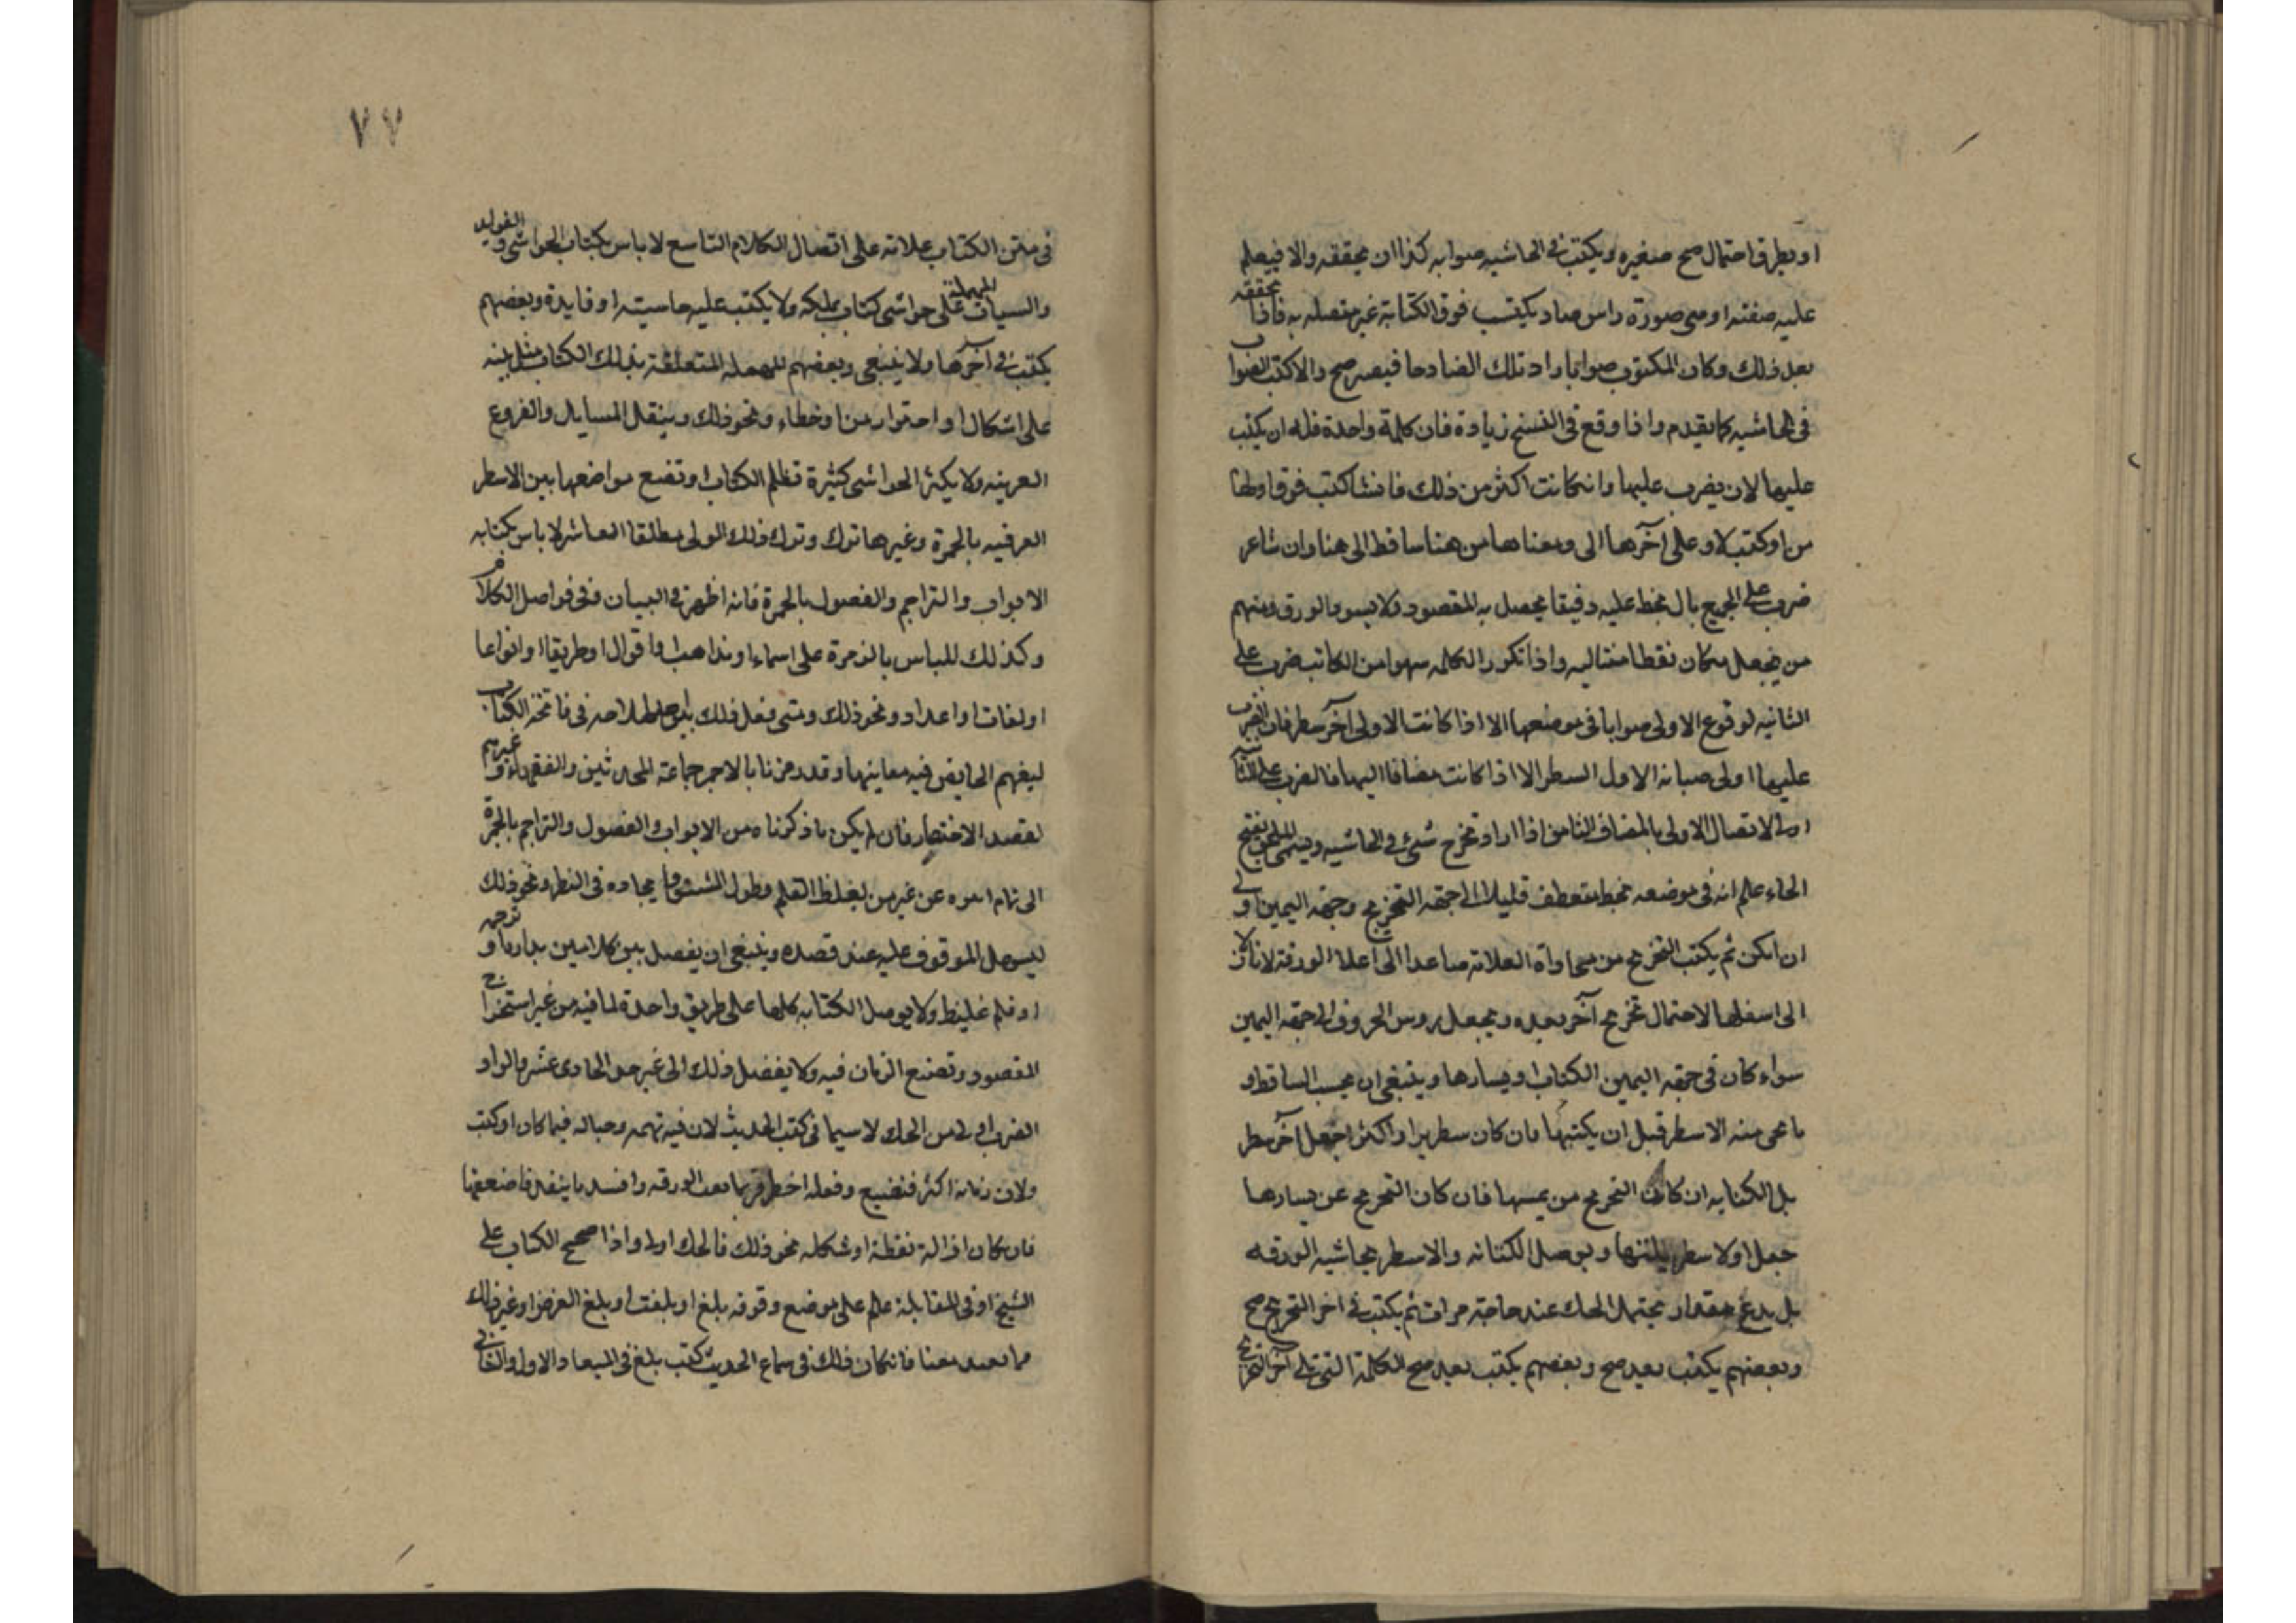 او تطرق احتمال صح صغيره ويكتب في الحاشيه صوابه كذا ان تحققه والا فيعلم
عليه صفته او هي صورة راس صاد يكتب فوق الكتابة غير متصله به فاذا تحققه
بعد ذلك وكان المكتوب صوابا زاد تلك الصاد حا فيصير صح والا كتب الصواب
في الحاشيه كما تقدم واذا وقع في النسخ زيادة فان كلمة واحدة فله ان يكتب
عليها لا ان يضرب عليها وانكانت اكثر من ذلك فانشا كتب فوق اولها
من او كتب لا وعلى آخرها الى ومعناها من هنا ساقط الى هنا وان شاء
ضرب على الجميع بال يخط عليه دقيقا يحصل به المقصود ولا يسود الورق ومنهم
من يجعل مكان نقطا متتاليه واذا تكرر الكلمه سهوا من الكاتب ضرب على
الثانيه لوقوع الاولى صوابا في موضعها الا اذا كانت الاولى آخر سطر فان الضرب
عليها اولى صيانه الاول السطر الا اذا كانت مضافا اليها فالضرب على
لاتصال الاولى بالمضاف الثامن اذا اراد تخرج شئ في الحاشيه ويسمى اللحق بفتح
الحاء علم انه في موضعه بخط منعطف قليلا الى جهة التخريج وجهه اليمين اولى
ان امكن ثم يكتب التخريج من محاداة العلامة صاعدا الى اعلا الورقة لا نازلا
الى اسفلها لاحتمال تخريج آخر بعده ويجعل روس الحروف الى جهه اليمين
سواء كان في جهه اليمين الكتاب او يسارها وينبغي ان يحسب الساقط و
ما يجى منه الاسطر قبل ان يكتبها فان كان سطرين او اكثر جعل آخر سطر
بل الكتابه ان كان التخريج من يمينها فان كان التخريج عن يسارها
جعل اولا سطر يليها و يوصل الكتابه والاسطر بحاشيه الورقه
بل يدع مقدار يحتمل الحك عند حاجته مرات ثم يكتب في اخر التخريج صح
وبعضهم يكتب بعد صح وبعضهم يكتب بعد صح الكلمة التي تلي آخر التخريج
٧٧
في متن الكتاب علامة على اتصال الكلام التاسع لا باس بكتاب الحواشي و الفوايد
والسيات المهملة على حواشي كتاب يملكه ولا يكتب عليه حاشيته او فايدة وبعضهم
يكتب في آخرها ولا ينبغي وبعضهم المتعلقة بذلك الكتاب مثل
على اشكال او احتراز من او خطاء ونحو ذلك وينقل المسايل والفروع
الغريبه ولا يكثر الحواشي كثيرة تظلم الكتاب او تضع مواضعها بين الاسطر
بالحمرة وغيرها ترك وترك ذلك الولى مطلقا العاشر لا باس بكتابه
الابواب والتراجم والفصول بالحمرة فانه اظهر في البيان وفي فواصل الكلام
وكذلك للباس بالرمزة على اسماء او مذاهب او اقوال او طريقا او انواعا
او لغات او اعداد ونحو ذلك ومتى فعل ذلك بين في فاتحة الكتاب
ليفهم الخايض فيه معاينها وقد رمزنا بالاحمر جماعة المحدثين والفقهاء و غيرهم
لقصد الاختصار فان لم يكن ما ذكرناه من الابواب والفصول والتراجم بالحمرة
الى عن غير من بغلظ القلم وطول المشق في النظر ونحو ذلك
الموقوف عليه عند قصده وينبغي ان يفصل بين كلامين بدارة او ترجمه
او قلم غليظ ولا يوصل الكتابه كلها على طريق واحدة لما فيه من غير استخراج
المقصود وتضيع الزمان فيه ولا يفضل ذلك الى غير الحادى عشر والواو
الضرب اولى من الحك لا سيما في كتب الحديث لان فيه تهمه وجهاله فيما كان او كتب
ولان زمانه اكثر فتضيع وفعله اخطر فربما الورقه وافسد ما ينفد
فان كان ازالة نقطة او شكله نحو ذلك فالحك اولى واذا صحح الكتاب على
الشيخ او في المقابلة علم على موضع وقوفه بلغ او بلغت او بلغ العرض او غير ذلك
مما يفيد معنا فانكان ذلك في سماع الحديث كتب بلغ في الميعاد الاول والثاني